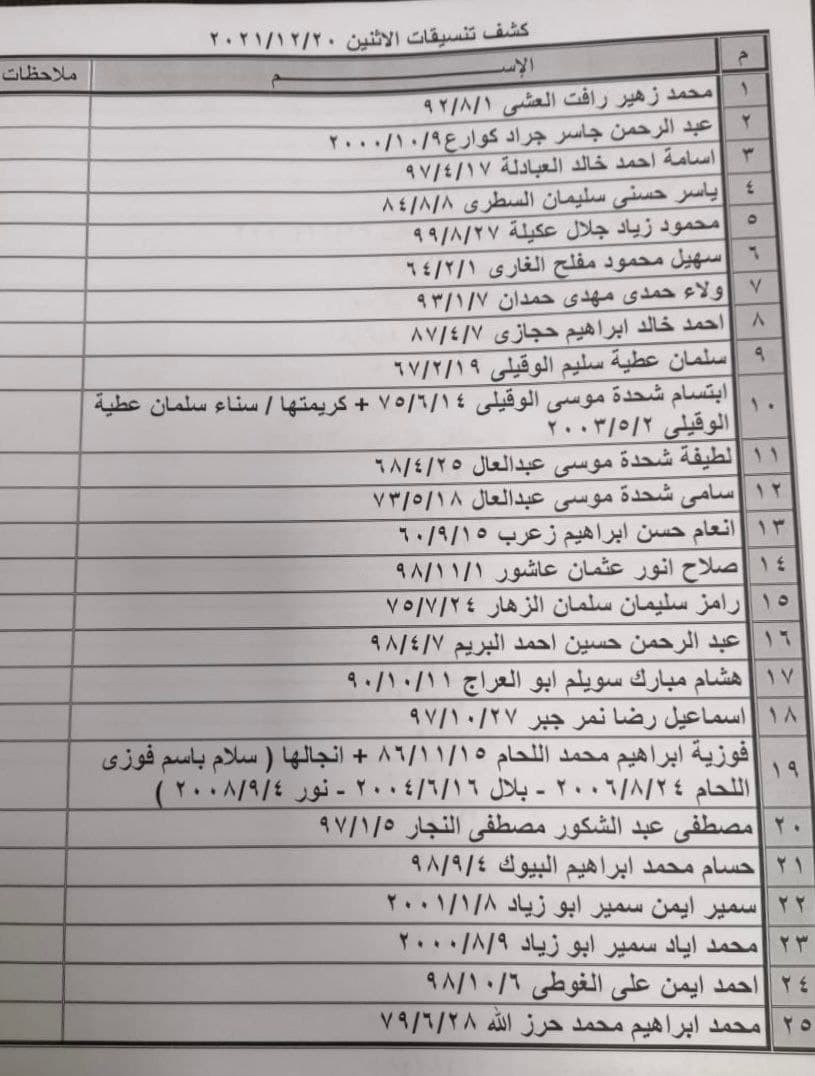 كشف تنسيقات الاثنين ٢٠٢١/١٢/٢٠
م الإســـــــــــــــم ملاحظات
١ محمد زهير رافت العشى ٩٢/٨/١
٢ عبد الرحمن جاسر جراد كوارع ٢٠٠٠/١٠/٩
٣ اسامة احمد خالد العبادلة ٩٧/٤/١٧
٤ ياسر حسنى سليمان السطرى ٨٤/٨/٨
٥ محمود زياد جلال عكيلة ٩٩/٨/٢٧
٦ سهيل محمود مفلح الغارى ٦٤/٢/١
٧ ولاء حمدى مهدى حمدان ٩٣/١/٧
٨ احمد خالد ابراهيم حجازى ٨٧/٤/٧
٩ سلمان عطية سليم الوقيلى ٦٧/٢/١٩
١٠ ابتسام شحدة موسى الوقيلى ٧٥/٦/١٤ + كريمتها / سناء سلمان عطية
الوقيلى ٢٠٠٣/٥/٢
١١ لطيفة شحدة موسى عبدالعال ٦٨/٤/٢٥
١٢ سامى شحدة موسى عبدالعال ٧٣/٥/١٨
١٣ انعام حسن ابراهيم زعرب ٦٠/٩/١٥
١٤ صلاح انور عثمان عاشور ٩٨/١١/١
١٥ رامز سليمان سلمان الزهار ٧٥/٧/٢٤
١٦ عبد الرحمن حسين احمد البريم ٩٨/٤/٧
١٧ هشام مبارك سويلم ابو العراج ٩٠/١٠/١١
١٨ اسماعيل رضا نمر جبر ٩٧/١٠/٢٧
١٩ فوزية ابراهيم محمد اللحام ٨٦/١١/١٥ + انجالها ( سلام باسم فوزى
اللحام ٢٠٠٦/٨/٢٤ - بلال ٢٠٠٤/٦/١٦ - نور ٢٠٠٨/٩/٤ )
٢٠ مصطفى عبد الشكور مصطفى النجار ٩٧/١/٥
٢١ حسام محمد ابراهيم البيوك ٩٨/٩/٤
٢٢ سمير ايمن سمير ابو زياد ٢٠٠١/١/٨
٢٣ محمد اياد سمير ابو زياد ٢٠٠٠/٨/٩
٢٤ احمد ايمن على الغوطى ٩٨/١٠/٦
٢٥ محمد ابراهيم محمد حرز الله ٧٩/٦/٢٨